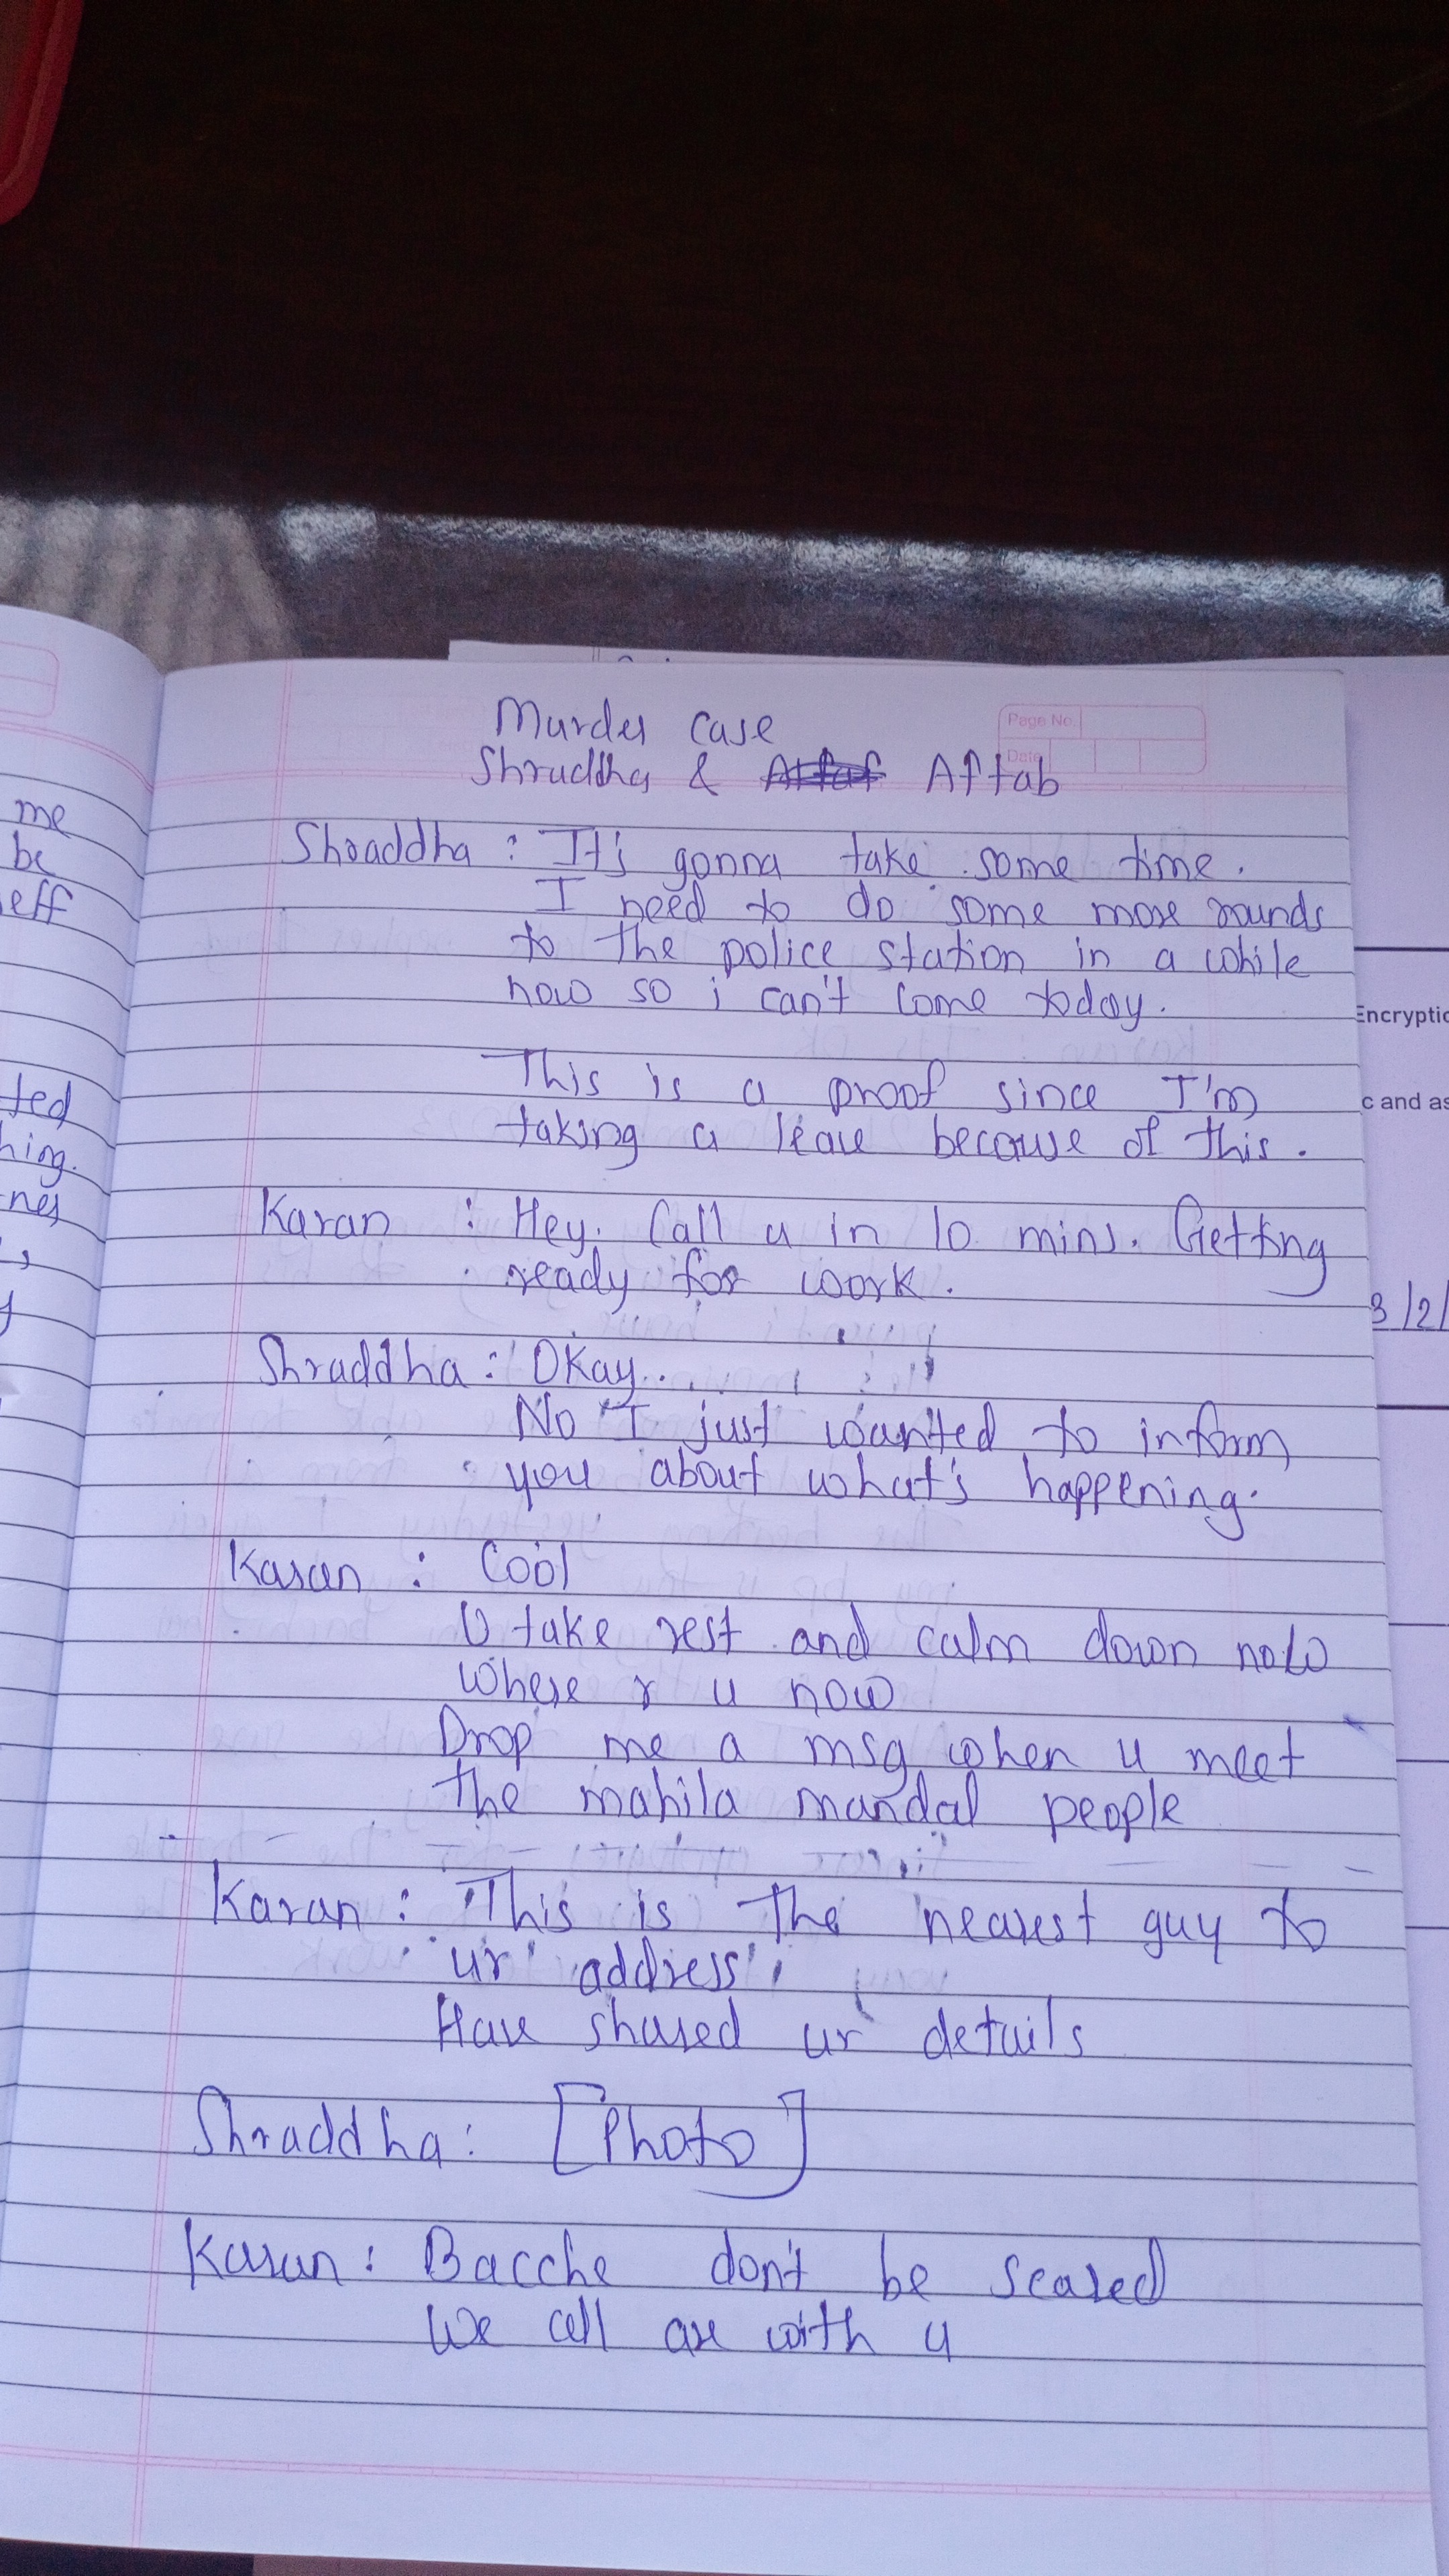 Murder case
Shruddha & Aftab
Page No.
Date
Shraddha : It's gonna take some time.
I need to do some more rounds
to the police station in a while
now so i can't come today.
This is a proof since I'm
taking a leave because of this.
Karan : Hey. Call u in 10 mins. Getting
ready for work.
Shraddha : Okay..
No I just wanted to inform
you about what's happening.
Karan : Cool
U take rest and calm down now
Where r u now
Drop me a msg when u meet
the mahila mandal people
Karan : This is the nearest guy to
ur address
Have shared ur details
Shraddha : [Photo]
Karan : Bacche don't be scared
We all are with u
me
be
eff
ted
hing.
nes
Encryptic
c and as
3/2/